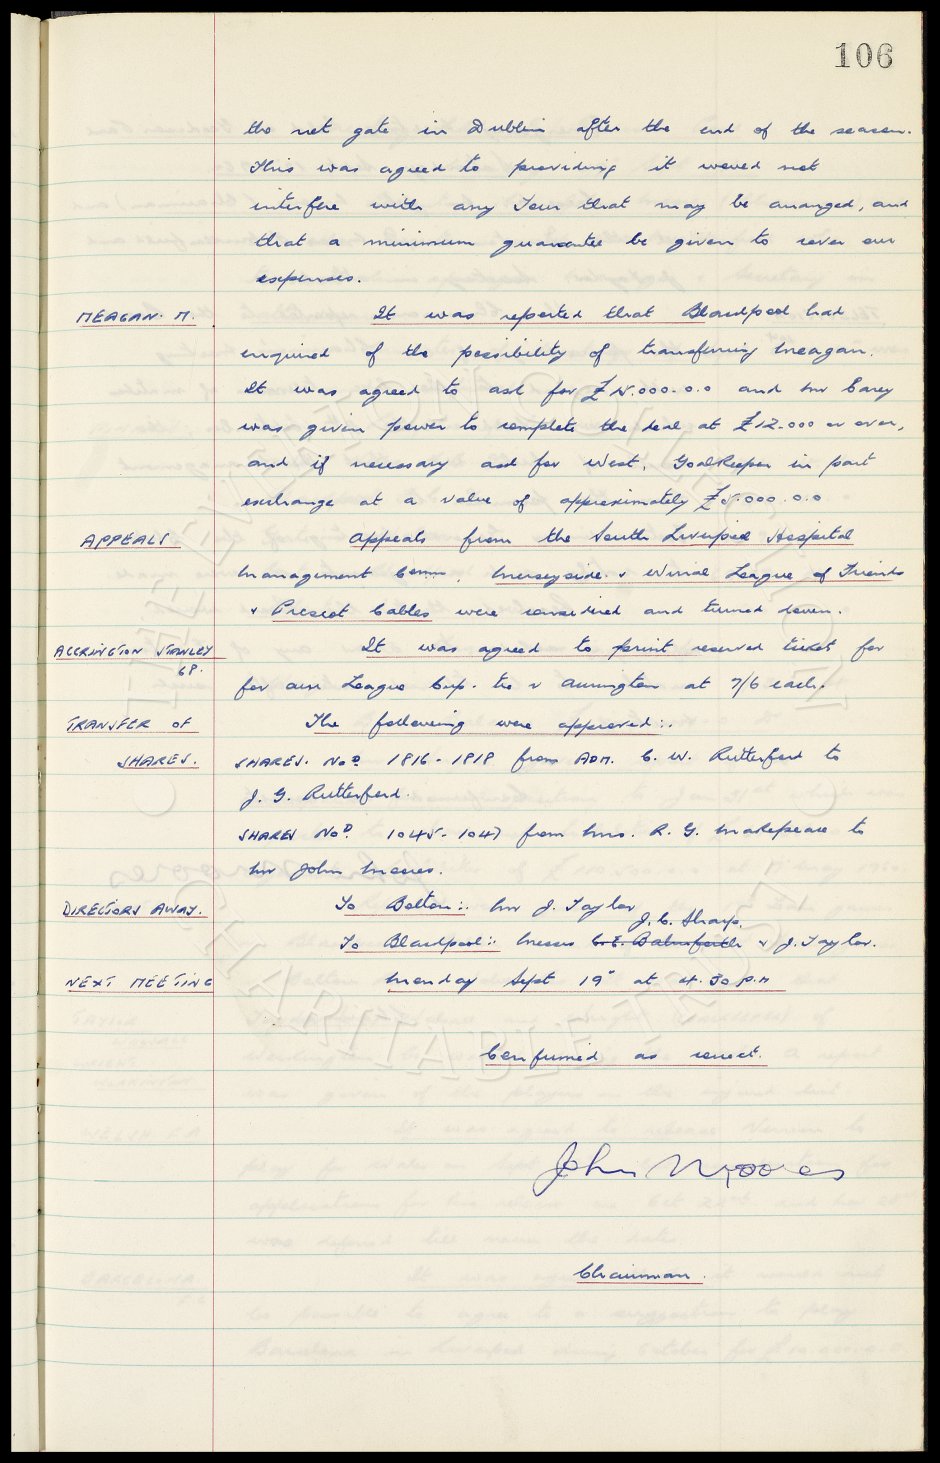 106
the net gate in Dublin after the end of the season.
This was agreed to providing it would not
interfere with any Tour that may be arranged, and
that a minimum guarantee be given to cover our
expenses.
MEAGAN. M. It was reported that Blackpool had
enquired of the possibility of transferring Meagan.
It was agreed to ask for £15.000.0.0 and Mr Carey
was given power to complete the deal at £12.000 or over,
and if necessary ask for West, Goalkeeper in part
exchange at a value of approximately £5.000.0.0
APPEALS Appeals from the South Liverpool Hospital
Management Comm, Merseyside & Wirral League of Friends
& Prescot Cables were considered and turned down.
ACCRINGTON STANLEY It was agreed to print reserved ticket for
for our League Cup. tie v Accrington at 7/6 each.
TRANSFER OF The following were approved:.
SHARES. SHARES. Nos. 1816 - 1818 from ADM. C. W. Rutterford to
J. G. Rutterford.
SHARES Nos. 1045 - 1047 from Mrs. R. G. Makepeace to
Mr John Moores.
DIRECTORS AWAY. To Bolton:. Mr J. Taylor
J. C. Sharp.
To Blackpool:. Messrs C. E. Balmforth & J. Taylor.
NEXT MEETING Monday Sept 19" at 4.30 p.m
Confirmed as correct.
John Moores
Chairman.